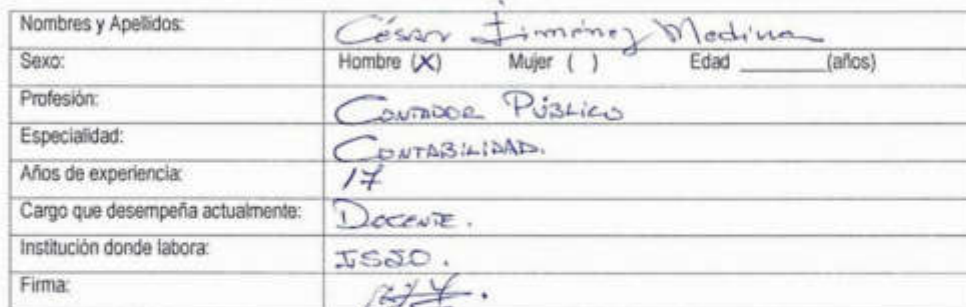 Nombres y Apellidos: César Jiménez Medina
Sexo: Hombre (X) Mujer ( ) Edad ________(años)
Profesión: CONTADOR PÚBLICO
Especialidad: CONTABILIDAD.
Años de experiencia: 17
Cargo que desempeña actualmente: DOCENTE.
Institución donde labora:
Firma: